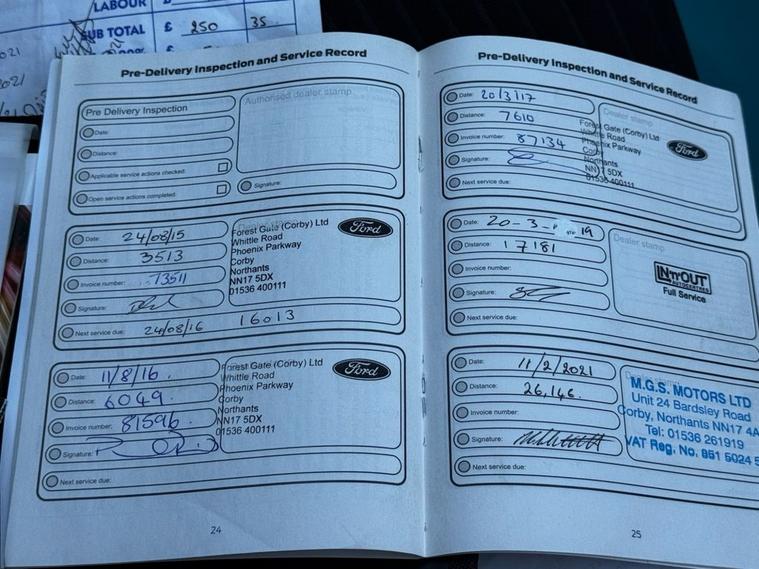 LABOUR £ 250 35
SUB TOTAL £
2021
2021
Pre-Delivery Inspection and Service Record
Pre Delivery Inspection
Authorised dealer stamp
Date:
Distance:
Applicable service actions checked:
Open service actions completed:
Signature:
Date: 24/08/15
Distance: 3513
Invoice number: 73511
Signature:
Next service due: 24/08/16 16013
Dealer stamp
Forest Gate (Corby) Ltd
Whittle Road
Phoenix Parkway
Corby
Northants
NN17 5DX
01536 400111
Ford
Date: 11/8/16.
Distance: 6049.
Invoice number: 81596.
Signature:
Next service due:
Forest Gate (Corby) Ltd
Whittle Road
Phoenix Parkway
Corby
Northants
NN17 5DX
01536 400111
Ford
24
Pre-Delivery Inspection and Service Record
Date: 20/3/17
Distance: 7610
Invoice number: 87134
Signature:
Next service due:
Dealer stamp
Forest Gate (Corby) Ltd
Whittle Road
Phoenix Parkway
Corby
Northants
NN17 5DX
01536 400111
Ford
Date: 20-3- 19
Distance: 17181
Invoice number:
Signature:
Next service due:
Dealer stamp
IN'n'OUT
AUTOCENTRES
Full Service
Date: 11/2/2021
Distance: 26,146.
Invoice number:
Signature:
Next service due:
M.G.S. MOTORS LTD
Unit 24 Bardsley Road
Corby, Northants NN17 4A
Tel: 01536 261919
VAT Reg. No. 851 5024 5
25